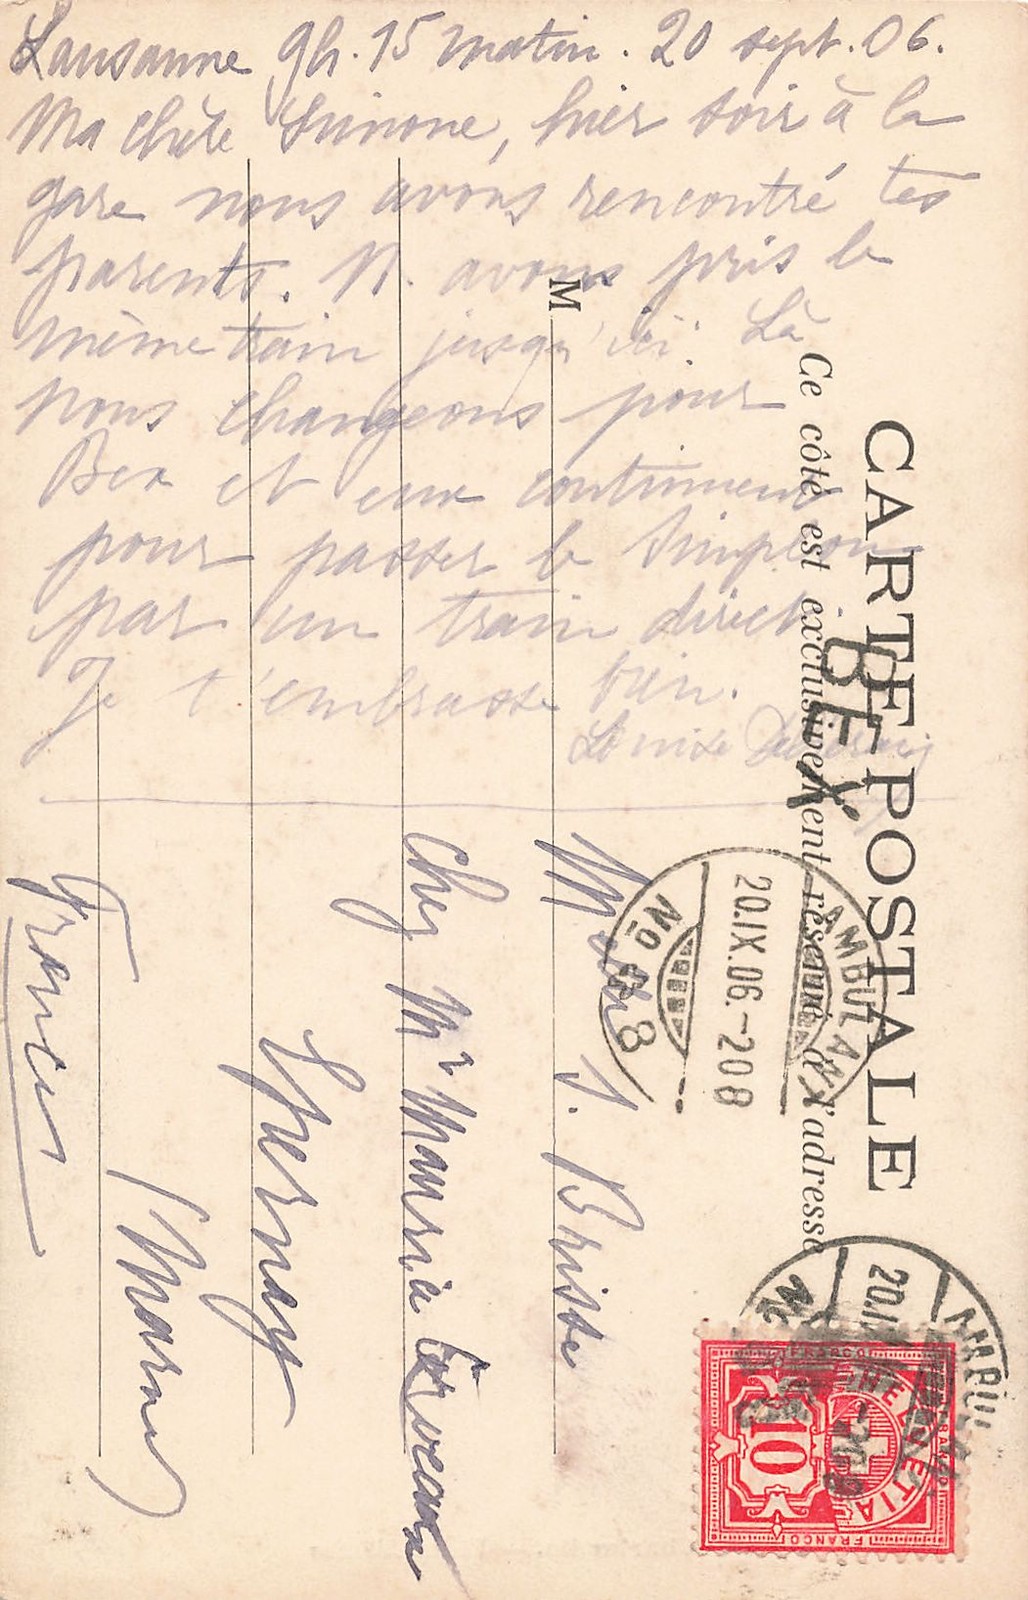 Lausanne 9h.15 matin. 20 sept. 06.
Ma chère Simone, hier soir à la
gare nous avons rencontré tes
parents. N. avons pris le
même train jusqu'ici. Là
nous changeons pour
Bex et eux continuent
pour passer le Simplon
par un train direct.
Je t'embrasse bien.
Louise
CARTE POSTALE
Ce côté est exclusivement réservé à l'adresse
M
BEX
AMBULANT
20.IX.06.-208
No 8
S. Brisse
Chez Mr Maurice
Epernay
Marne
France
AMBU
20.IX
-208
No
FRANCO
HELVETIA
10
FRANCO